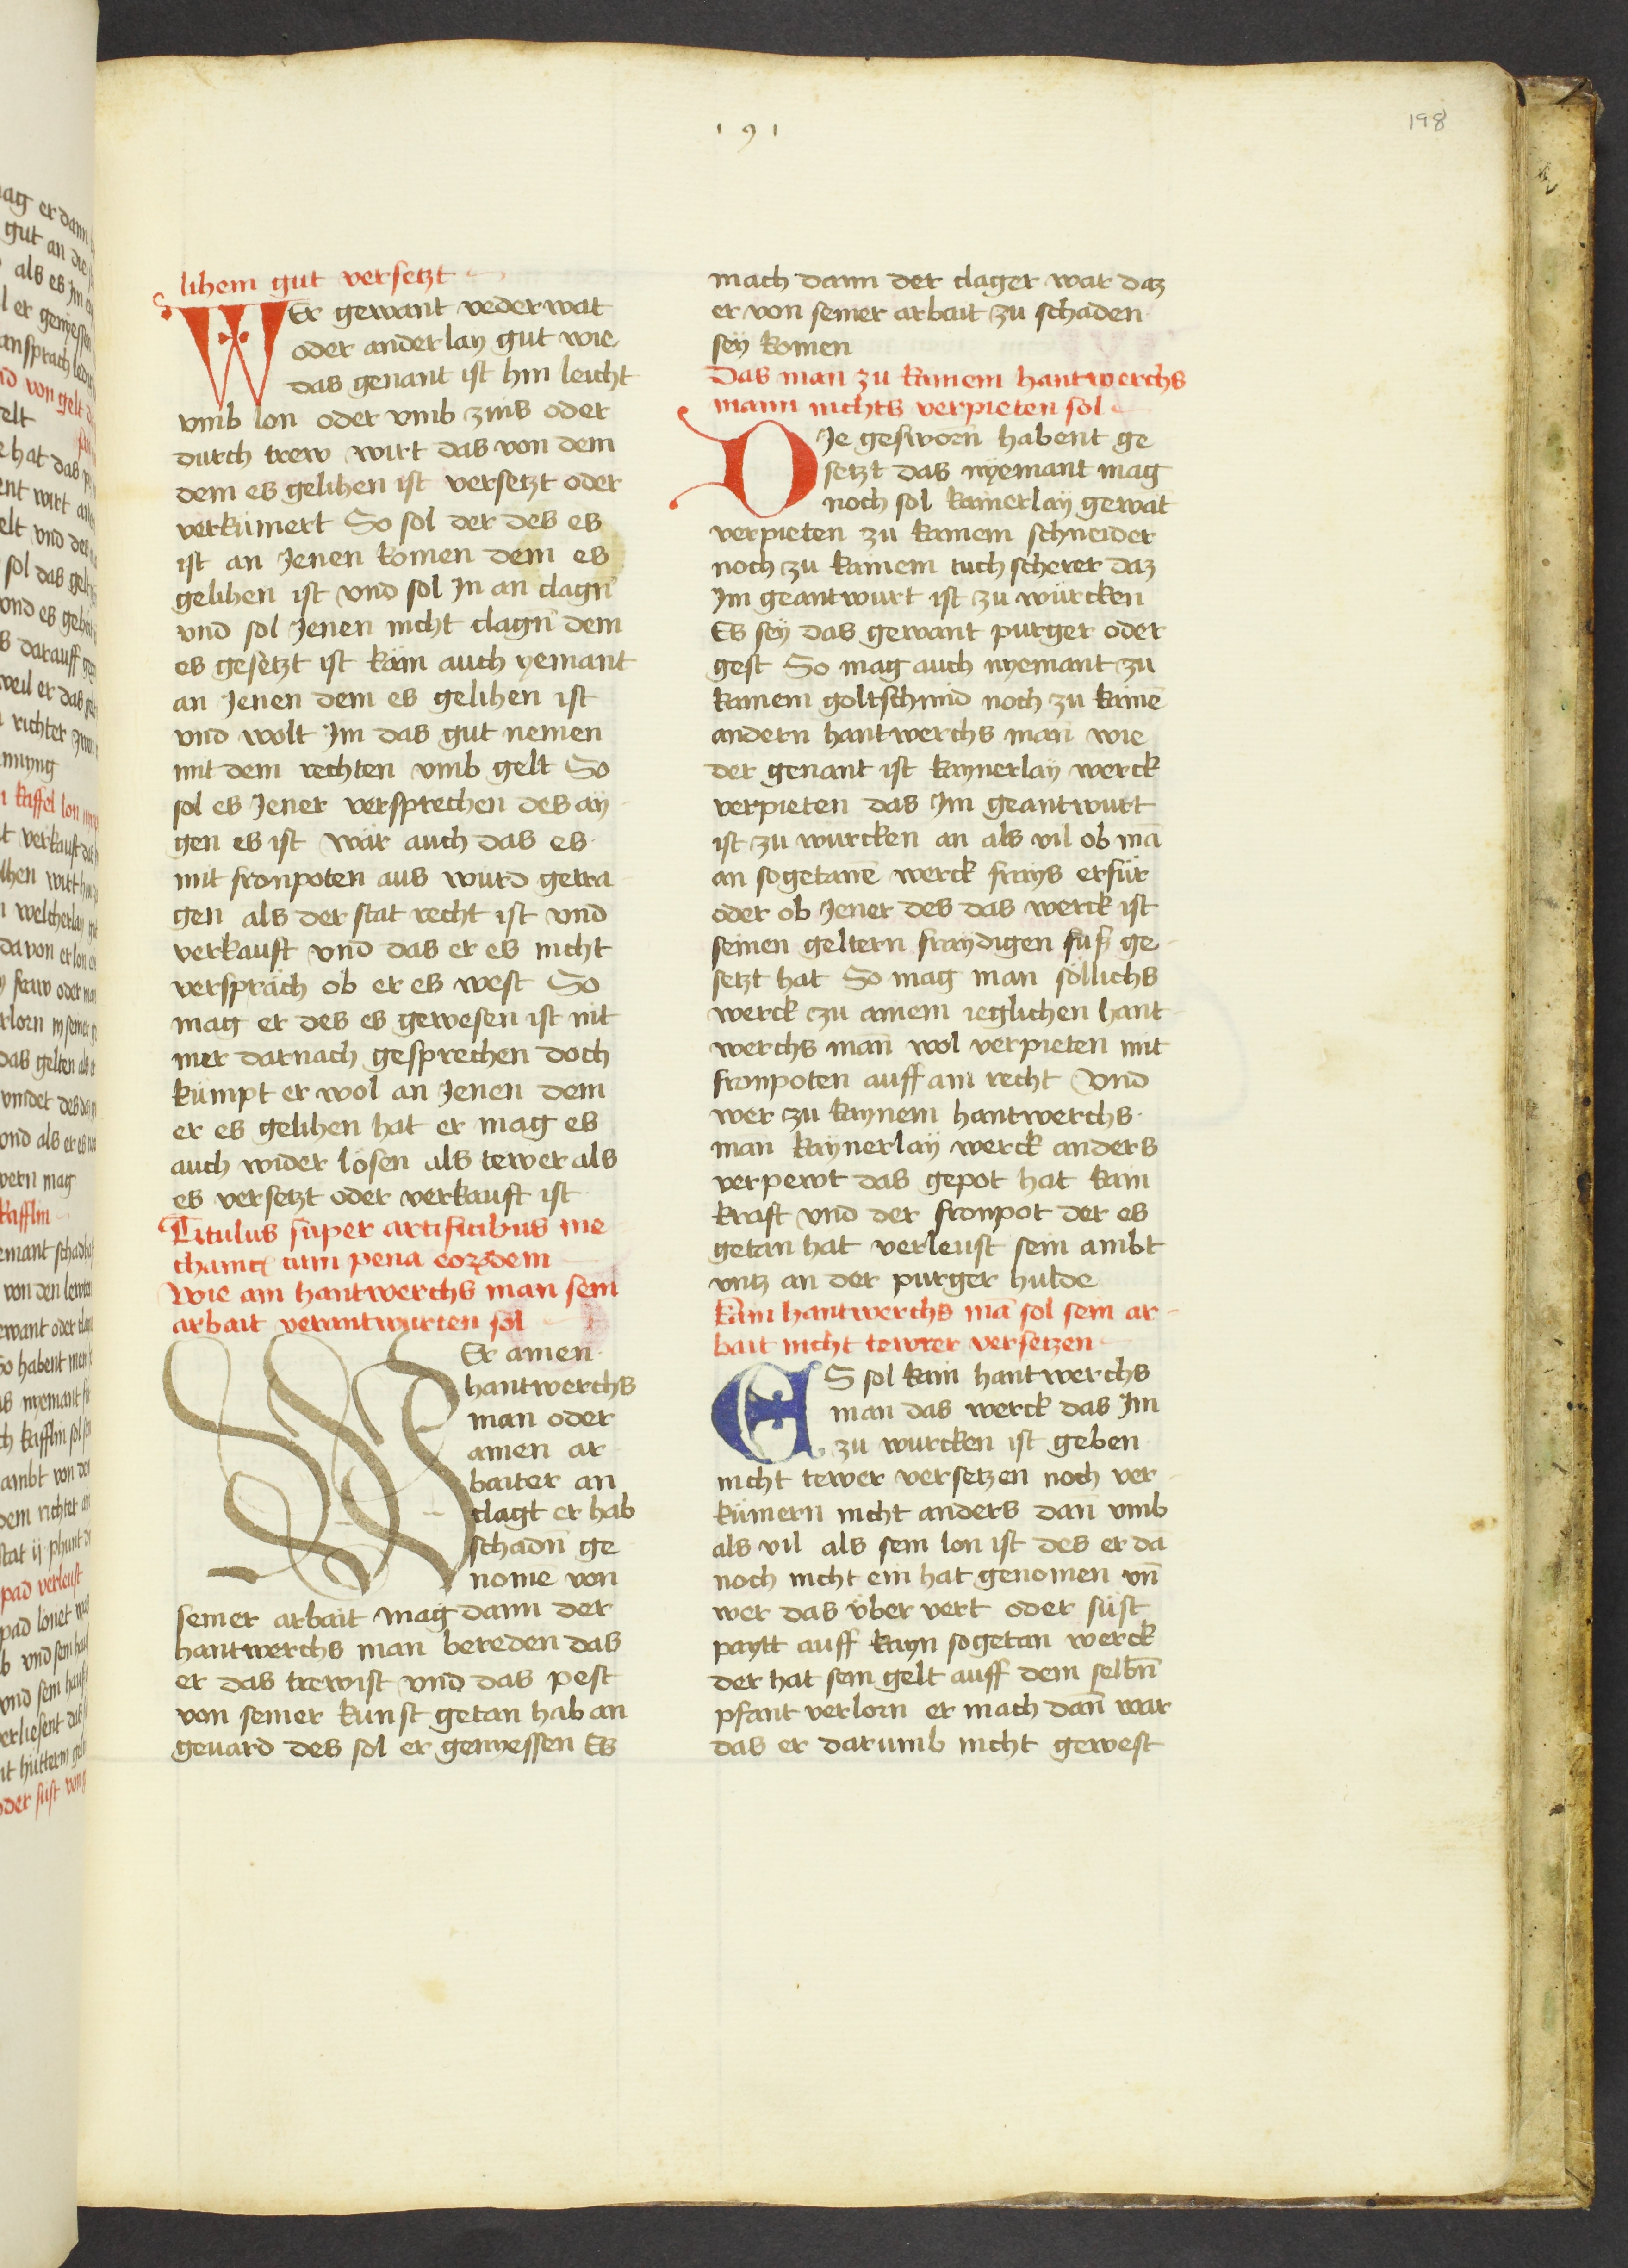 191
198
lihem gut versetzt
WEr gewant vederwat
oder anderlay gut wie
das genant ist hin leicht
vmb lon oder vmb zins oder
durch trew wirt das von dem
dem es gelihen ist versetzt oder
verkümert So sol der des es
ist an Jenen komen dem es
gelihen ist vnd sol Jn an clagn̄
vnd sol Jenen nicht clagn̄ dem
es gesetzt ist käm auch yemant
an Jenen dem es gelihen ist
vnd wolt Jm das gut nemen
mit dem rechten vmb gelt So
sol es Jener versprechen des ay
gen es ist wär auch das es
mit fronpoten aus wurd getra
gen als der stat recht ist vnd
verkauft vnd das er es nicht
verspräch ob er es west So
mag er des es gewesen ist nit
mer darnach gesprechen doch
kumpt er wol an Jenen dem
er es gelihen hat er mag es
auch wider lösen als tewer als
es versetzt oder verkauft ist
Titulus super artificibus me
chanicꝭ cum pena eoꝛꝝdem
Wie ain hantwerchs man sein
arbait verantwurten sol
WEr ainen
hantwerchs
man oder
ainen ar
baiter an
clagt er hab
schadn̄ ge
nome von
seiner arbait mag dann der
hantwerchs man bereden das
er das trewist vnd das pest
von seiner kunst getan hab an
geuärd des sol er genyessen Es
mach dann der clager war daz
er von seiner arbait zu schaden
seÿ komen
Das man zu kainem hantwerchs
mann nichts verpieten sol
DJe gesworn̄ habent ge
setzt das nyemant mag
noch sol kainerlaÿ gewat
verpieten zu kainem schneider
noch zu kainem tuchscherer daz
Jm geantwurt ist zu würcken
Es seÿ das gewant purger oder
gest So mag auch nyemant zu
kainem goltschmid noch zu kaine̅
andern hantwerchs man̄ wie
der genant ist kaynerlaÿ werck
verpieten das Jm geantwurt
ist zu wurcken an als vil ob ma̅
an sogetane̅ werck frays erfür
oder ob Jener des das werck ist
seinen geltern fraydigen fuß ge
setzt hat So mag man söllichs
werck zu ainem ieglichen hant
werchs man̄ wol verpieten mit
fronpoten auff ain recht Vnd
wer zu kaynem hantwerchs
man̄ kaynerlaÿ werck anders
verpewt das gepot hat kain
kraft vnd der fronpot der es
getan hat verleust sein ambt
vntz an der purger hulde
Kain hantwerchs ma̅ sol sein ar
bait nicht tewrer versetzen
ES sol kain hantwerchs
man das werck das Jm
zu wurcken ist geben
nicht tewer versetzen noch ver
kümern nicht anders dan̄ vmb
als vil als sein lon ist des er da
noch nicht ein hat genomen vn̄
wer das über vert oder süst
paytt auff kayn sogetan werck
der hat sein gelt auff dem selbn̄
pfant verlorn er mach dan̄ war
das er darumb nicht gewest